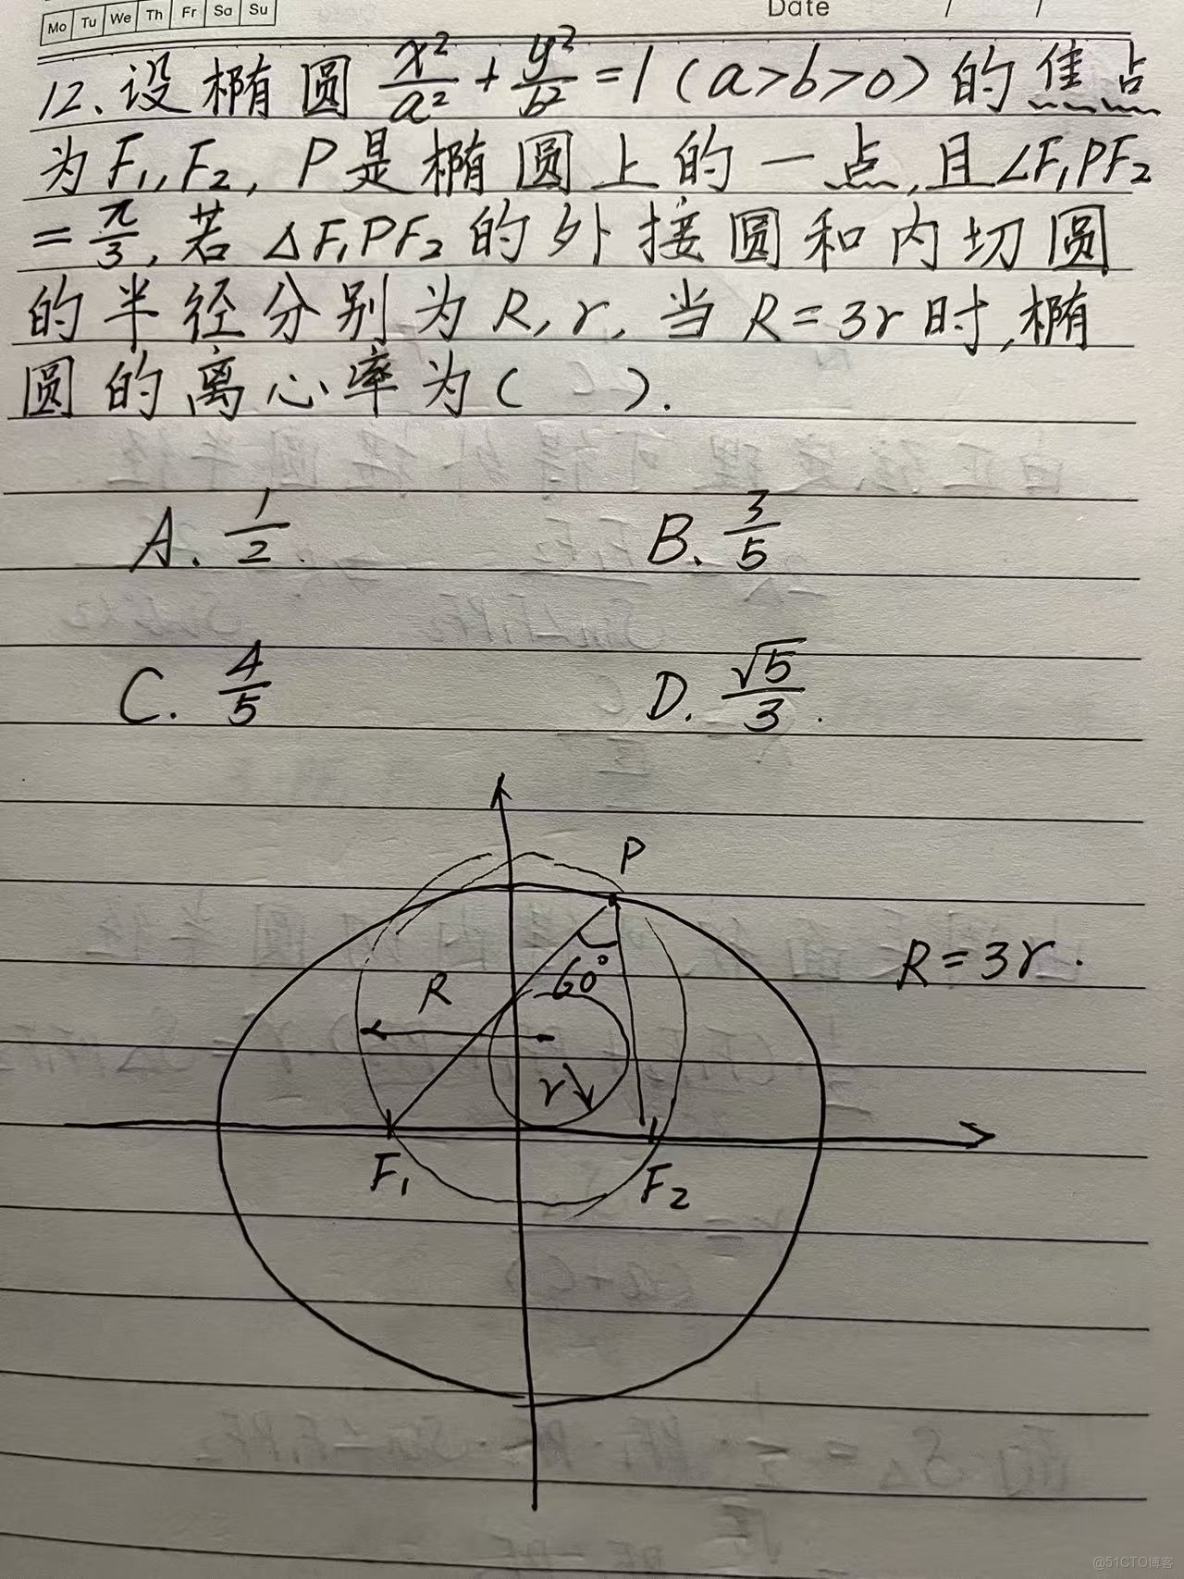 Mo Tu We Th Fr Sa Su
Date / /
12. 设椭圆 x²/a² + y²/b² = 1 (a>b>0) 的焦点
为F₁,F₂, P是椭圆上的一点,且∠F₁PF₂
= π/3, 若 △F₁PF₂ 的外接圆和内切圆
的半径分别为 R, r, 当 R=3r 时,椭
圆的离心率为( ).
A. 1/2. B. 3/5
C. 4/5 D. √5/3.
P
60°
R=3r.
R
r
F₁ F₂
@51CTO博客